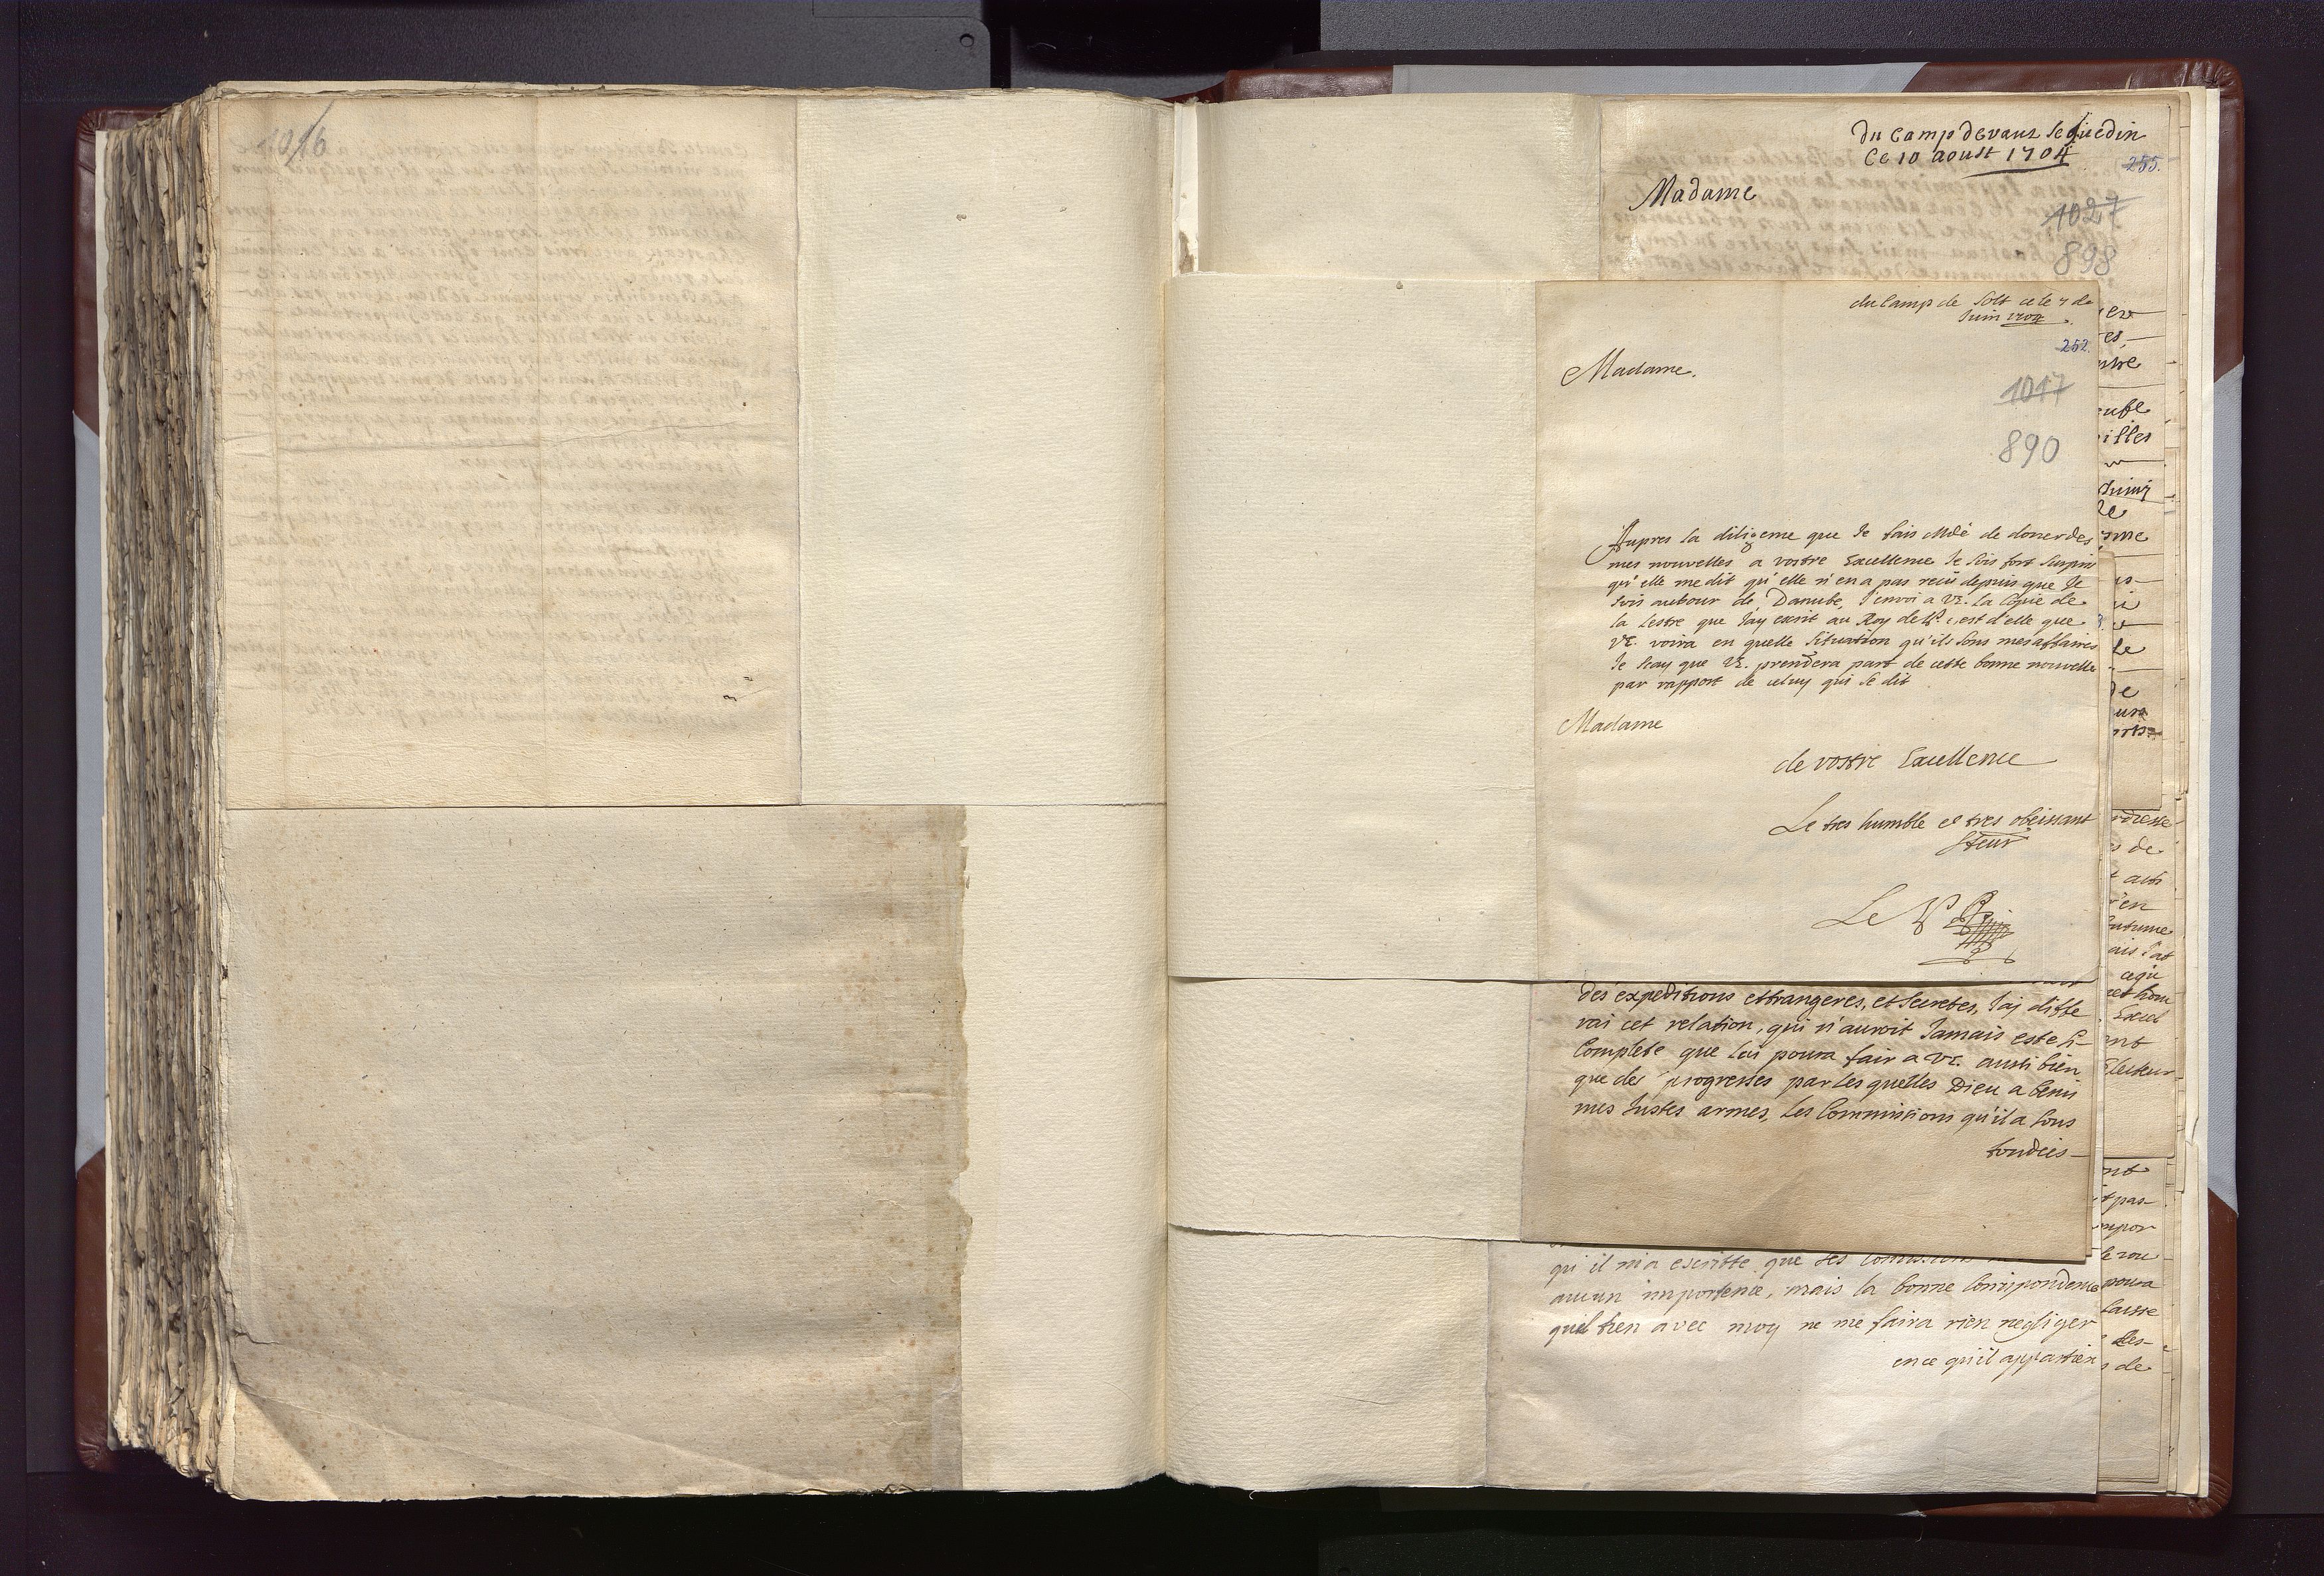 1016
du Camp devant Seguedin
Ce 10 aoust 1704
255.
Madame
1027
898
du Camp de Solt ce le 7 de
Juin 1704
252.
Madame.
1017
890
Aupres la diligeme que Je fais Mde de doner des
mes nouvelles a vostre Excellence Je sois fort surpris
qu'elle me dit qu'elle n'en a pas reçu depuis que Je
sois autour de Danube, J'envoi a VE. la Copie de
la lestre que Jay escrit au Roy de c'est d'elle que
VE. voira en quelle situation qu'ils sons mes affaires
Je scay que VE. prendera part de cette bonne nouvelle
par rapport de celuy qui se dit
Madame
de vostre Excellence
Le tres humble et tres obeissant
Steur
Le P
des expeditions ettrangeres, et secretes, J'ai diffe
rai cet relation, qui n'auroit Jamais este si
Complete que lui poura fair a VE. aussi bien
que des progresses par les quelles Dieu a beni
mes Justes armes, Les Commissions qu'il a sous
tondeis
qu'il m'a escritte que ses
aucun importence, mais la bonne Correspondence
quil tien avec moy ne me faira rien negliger
en ce qu'il appartien